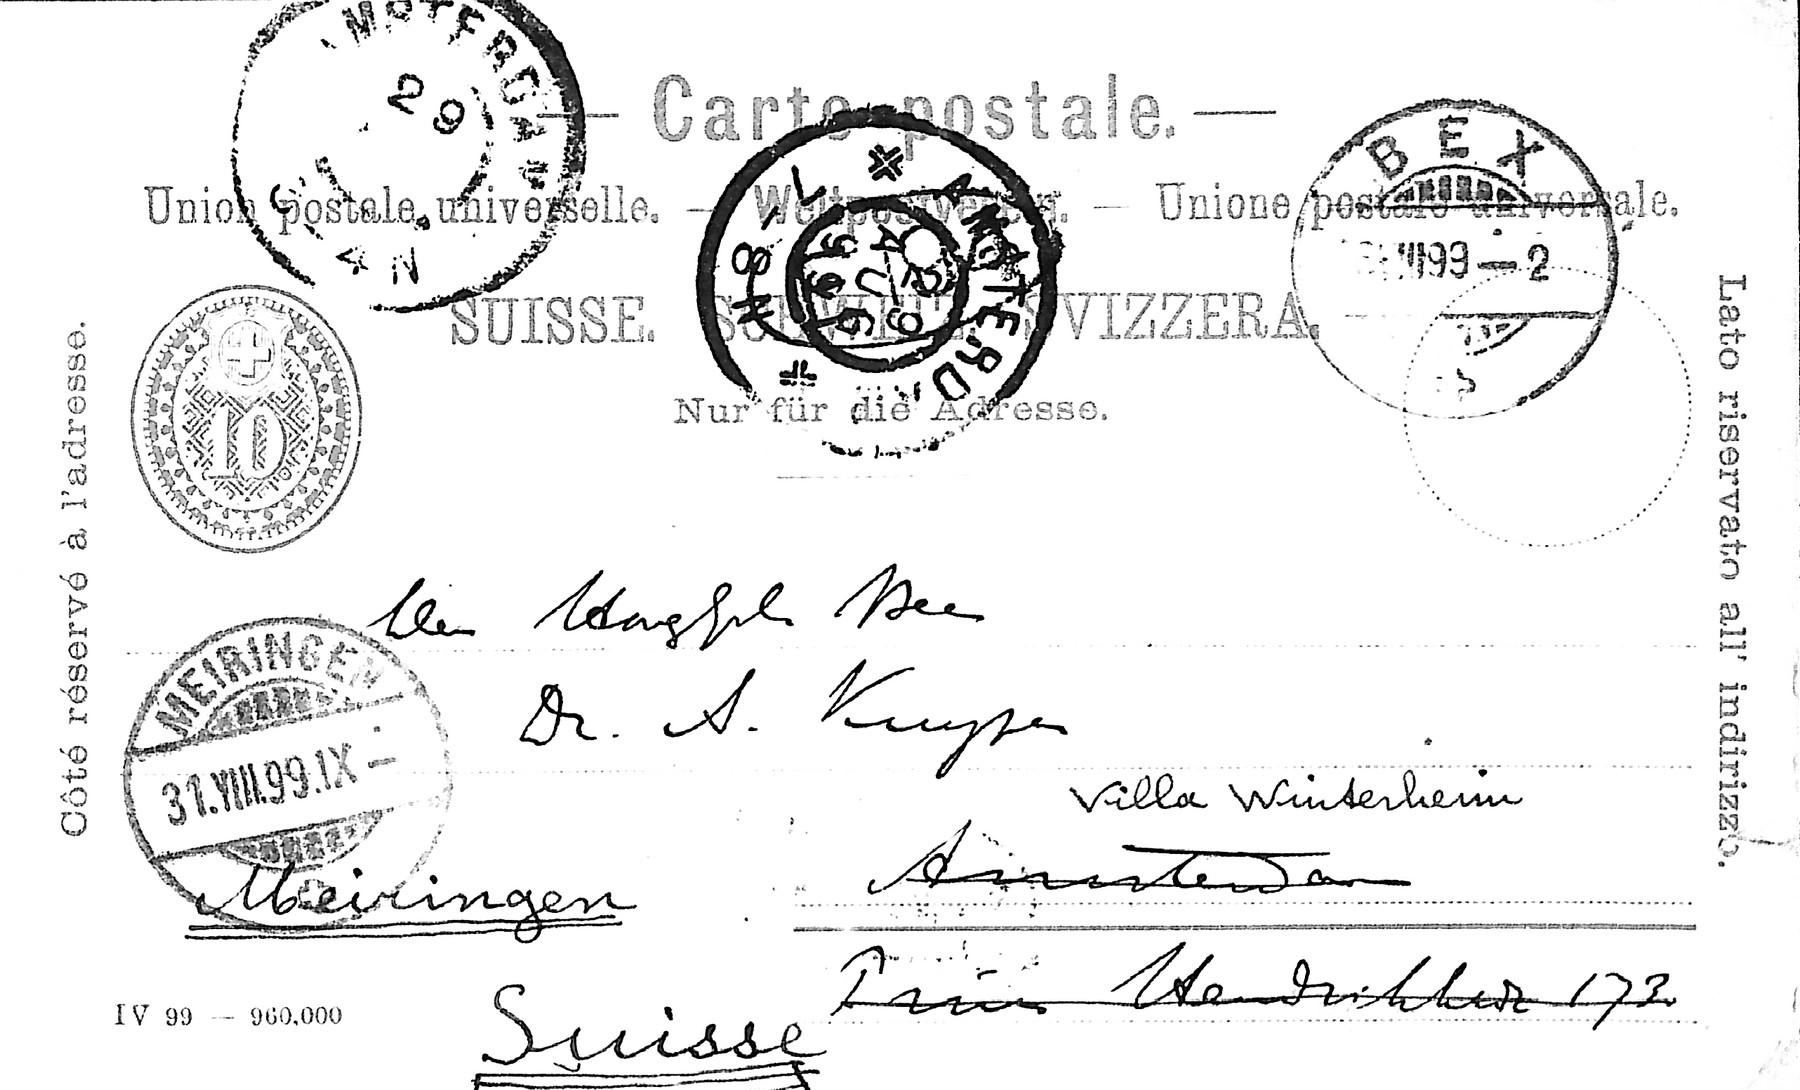 AMSTERDAM
29
4 N
Carte postale.
Union postale universelle. — Weltpostverein. — Unione postale universale.
SUISSE. SCHWEIZ. SVIZZERA.
Nur für die Adresse.
AMSTERDAM
8-9 N
29 AUG 99
BEX
VIII 99 – 2
Côté réservé à l'adresse.
Lato riservato all' indirizzo.
10
MEIRINGEN
31.VIII.99.IX –
Den HoogGel. Heer
Dr. A. Kuyper
Villa Winterheim
Amsterdam
Meiringen
Prins Hendrikkade 173
Suisse
IV 99 — 960,000